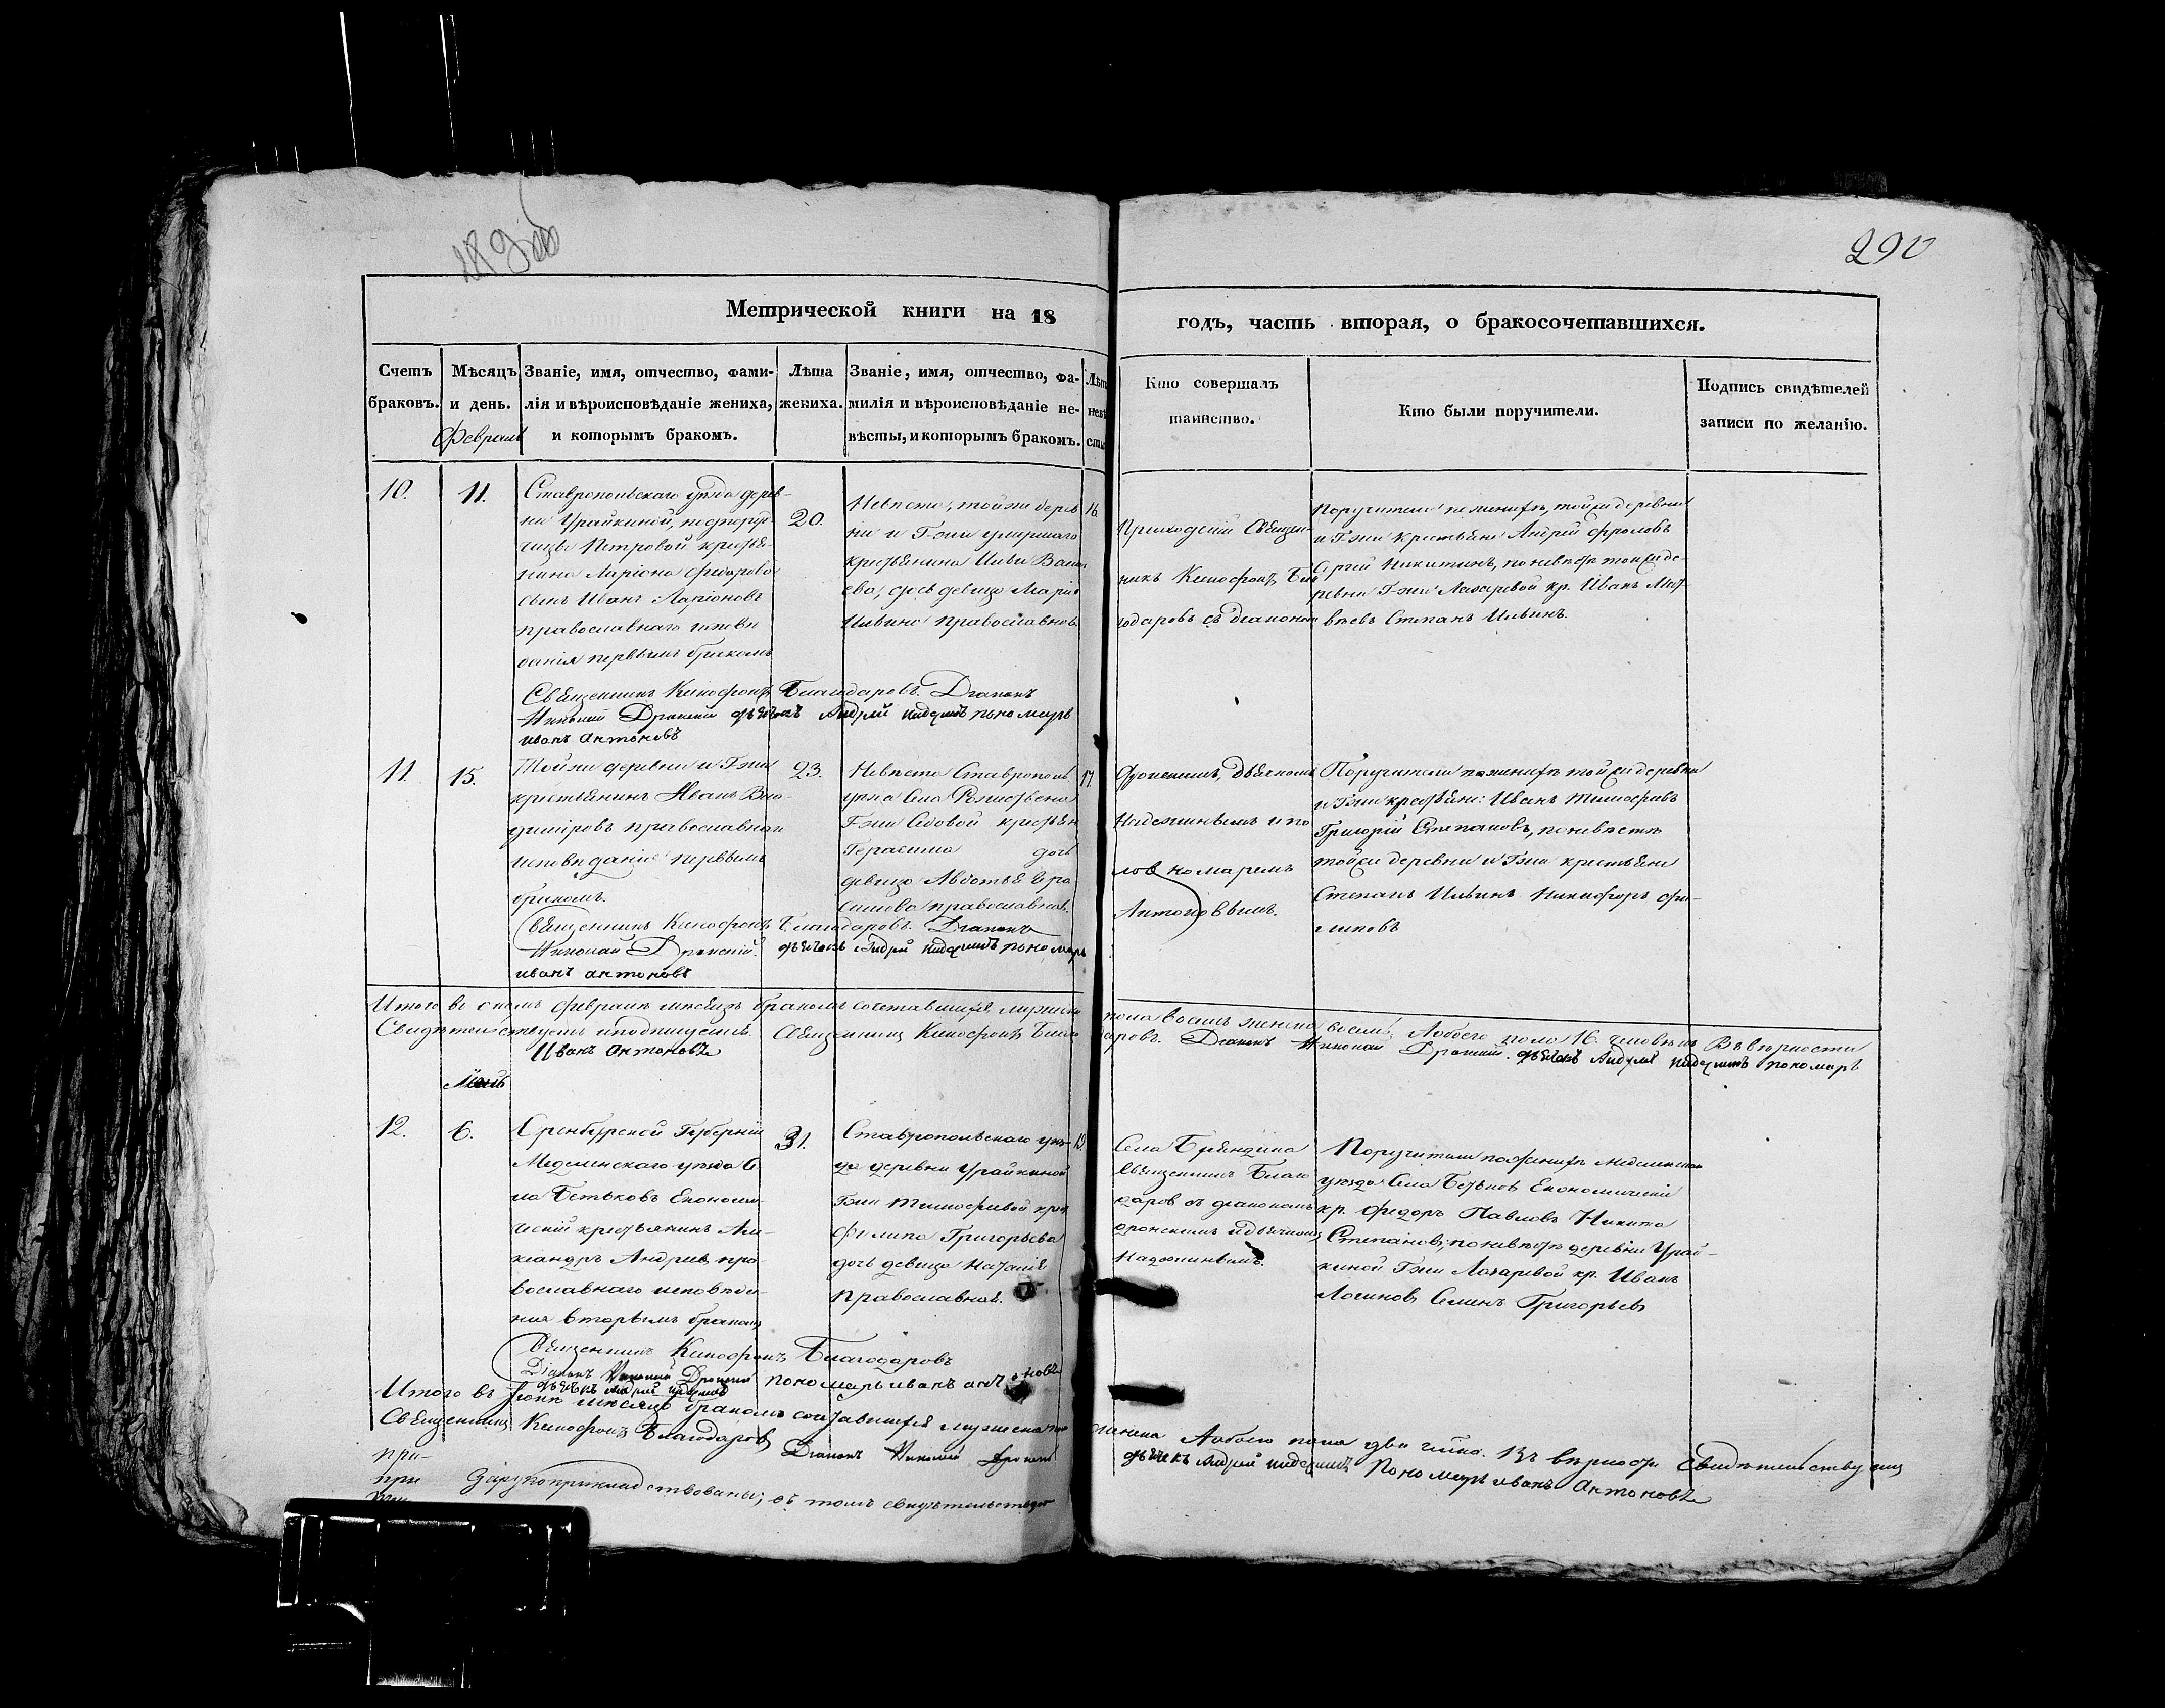 290
Метрической книги на 18
годъ, часть вторая, о бракосочетавшихся.
Счетъ браковъ.
Мѣсяцъ и день.
Февраль
Званіе, имя, отчество, фами-
лія и вѣроисповѣданіе жениха,
и которымъ бракомъ.
Лѣта
жениха.
Званіе, имя, отчество, фа-
милія и вѣроисповѣданіе не-
вѣсты, и которымъ бракомъ.
Кто совершалъ
таинство.
Кто были поручители.
Подпись свидѣтелей
записи по желанію.
10.
11.
Ставропольскаго уѣзда дерев-
ни Урайкиной, подпору-
чицы Петровой крестья-
нина Ларіона Федорова
сынъ Иванъ Ларіоновъ
православнаго исповѣ
данія первымъ бракомъ
20.
Невѣста, той же дерев
ни и Гжи умершаго
крестьянина Ильи Васи
ева, дочь девица Марья
Ильина православная
16.
Приходскій Священ-
никъ Ксенофонтъ Бла
годаровъ съ діаконом
Поручители по женихѣ, той же деревни
и Гжи крестьяне Андрей Фроловъ
Сергей Никитинъ, по невѣстѣ той же де-
ревни Гжи Лазаревой кр. Иванъ Мат-
вѣевъ Степанъ Ильинъ.
Священникъ Ксенофонтъ Благодаровъ. Діаконъ
Николай Дронскій дьячокъ Андрей Надежинъ пономарь
иванъ антоновъ
11.
15.
Той же деревни и Гжи
крестьянинъ Иванъ Вла-
диміровъ православнаго
исповѣданія первымъ
бракомъ.
23.
Невѣста Ставрополь
уѣзда Села Рожествена
Гжи Седовой крестьян
Герасима дочь
девица Авдотья Гера
симова православная.
17.
Дронскимъ, дьячкомъ
Надежинымъ и по
номаремъ
Антоновымъ.
Поручители по женихѣ той же деревни
и Гжи крестьяне: Иванъ Тимофеевъ
Григорій Степановъ, по невѣстѣ
той же деревни и Гжи крестьяне
Степанъ Ильинъ Никифоръ Фи-
липовъ
Священникъ Ксенофонтъ Благодаровъ. Діаконъ
Николай Дронскій. дьячокъ Андрей Надежинъ пономарь
иванъ антоновъ
Итого въ ономъ февралѣ мѣсяцѣ бракомъ сочетавшихся мужеска пола восемь женска восемь, Обоего пола 16. человѣкъ Въ верности
Свидѣтельствуемъ и подпишуемся. Священникъ Ксенофонтъ Благодаровъ. Діаконъ Николай Дронскій. дьячокъ Андрей Надежинъ пономарь
Иванъ Антоновъ
12.
6.
Оренбурской Губерніи
Мензелинскаго уѣзда Се
ла Бетьковъ Економи-
ческій крестьянинъ Але-
ксандръ Андреевъ, пра
вославнаго исповѣда-
нія вторымъ бракомъ
31.
Ставропольскаго уѣз-
да деревни Урайкиной
Гжи Тимофеевой крес
Филипа Григорьева
дочь девица Наталія
православная.
19.
Села Бряндина
Священникъ Благо
даров съ діакономъ
Дронскимъ и дьячкомъ
Надежинымъ.
Поручители по женихѣ Мензелинскаго
уѣзда Села Бетьковъ Економическіе
кр. Федоръ Павловъ Никита
Степановъ, по невѣстѣ деревни Урай-
киной Гжи Лазаревой кр. Иванъ
Логиновъ Семенъ Григорьевъ
Священникъ Ксенофонтъ Благодаровъ
Діаконъ Николай Дронскій пономарь иванъ антоновъ
дьячокъ Андрей Надежинъ
Итого въ Іюнѣ мѣсяцѣ бракомъ сочетавшихся мужеска женска Обоего пола два чело. Въ верности Свидѣтельствуемъ
Священникъ Ксенофонтъ Благодаровъ Діаконъ Николай Дронскій дьячекъ Андрей Надежинъ Пономарь иванъ Антоновъ
при
въ томъ свидѣтельствую